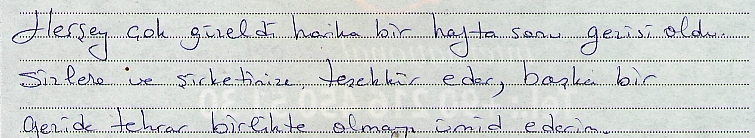 Herşey çok güzeldi harika bir hafta sonu gezisi oldu.
Sizlere ve şirketinize, teşekkür eder, başka bir
gezide tekrar birlikte olmayı ümid ederim.